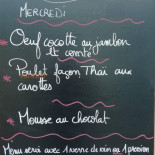 MERCREDI
Oeuf cocotte au jambon
et comté
Poulet façon Thaï aux
carottes
Mousse au chocolat
Menu servi avec 1 verre de vin ou 1 pression